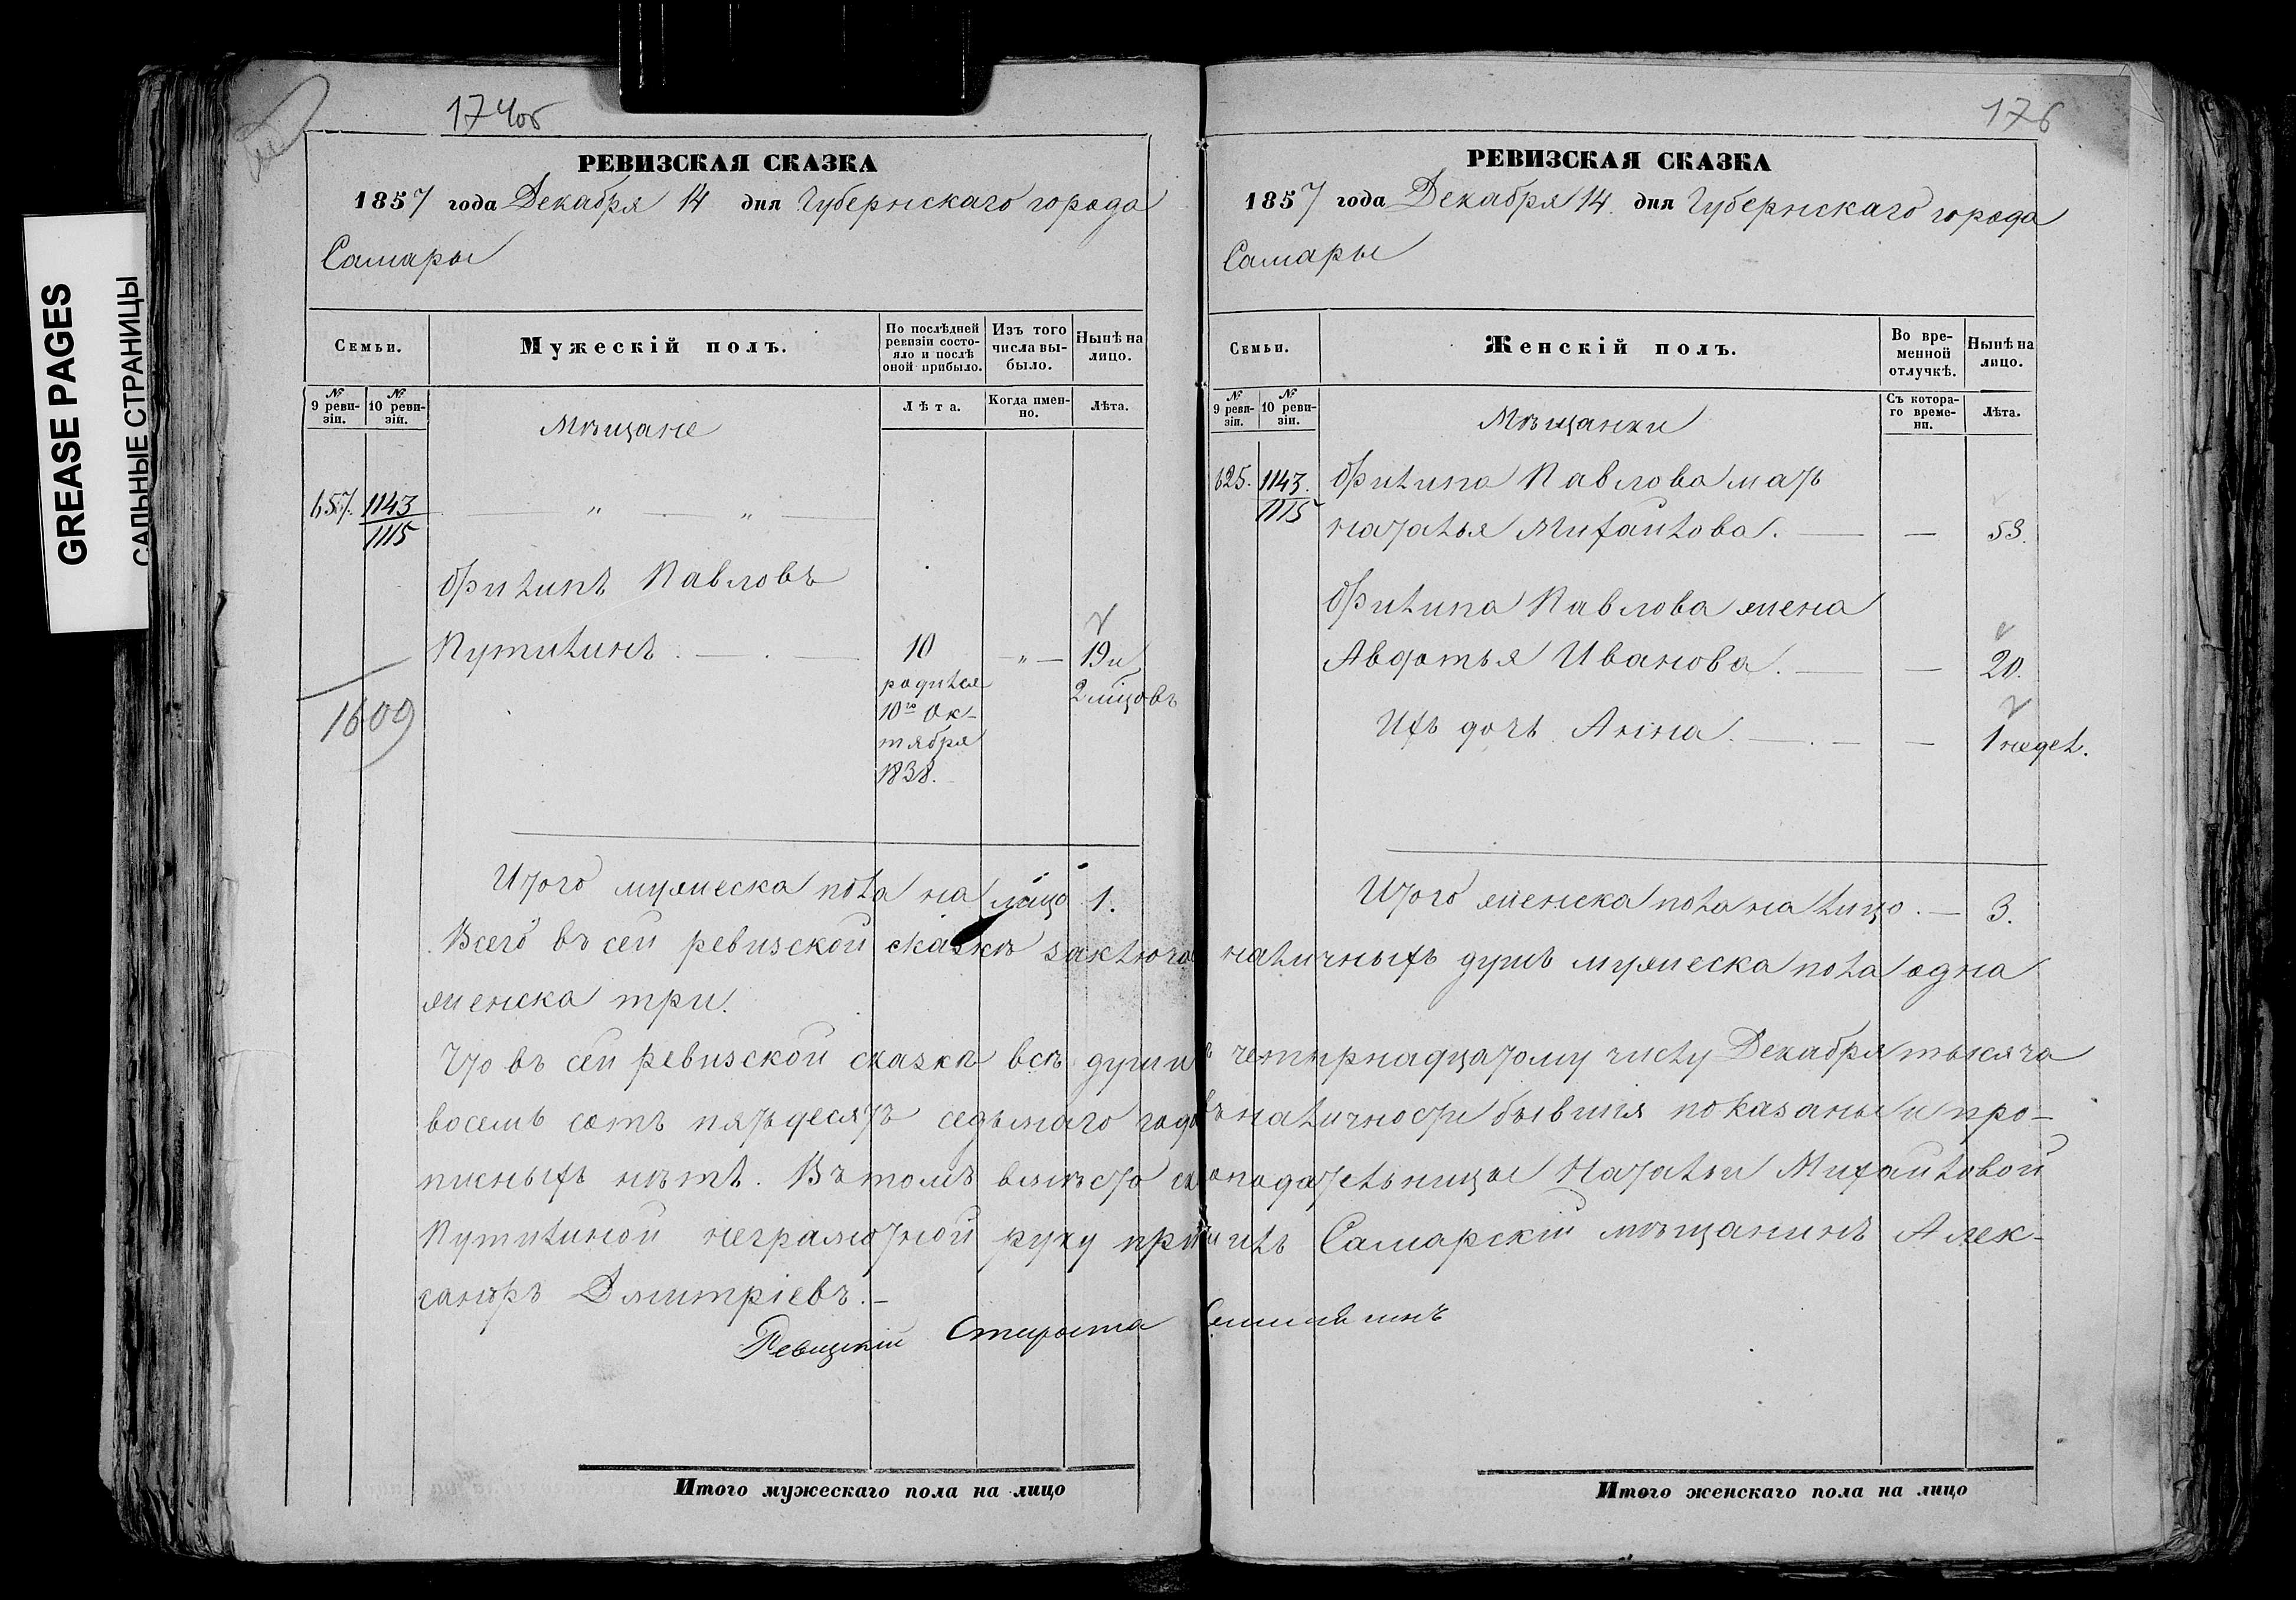 GREASE PAGES
САЛЬНЫЕ СТРАНИЦЫ
174об
РЕВИЗСКАЯ СКАЗКА
1857 года Декабря 14 дня Губернскаго города
Самары
Семьи.
Мужескій полъ.
По послѣдней ревизіи состояло и послѣ оной прибыло.
Изъ того числа выбыло.
Нынѣ на лицо.
№ 9 ревизіи.
№ 10 ревизіи.
Мѣщане
Лѣта.
Когда именно.
Лѣта.
657. 1143
1115
Филипъ Павловъ
Путилинъ. 10 — „ — 19 и
родился 2 мцовъ
10го Ок-
тября
1838.
1609
Итого мужеска пола на лицо 1.
Всего въ сей ревизской сказкѣ заключа
женска три.
Что въ сей ревизской сказкѣ всѣ души
восемь сотъ пятьдесятъ седьмаго года
писныхъ нѣтъ. Въ томъ вмѣсто
Путилиной неграмотной руку при
сандръ Дмитріевъ.
Ревизскій Староста
Итого мужескаго пола на лицо
176
РЕВИЗСКАЯ СКАЗКА
1857 года Декабря 14 дня Губернскаго города
Самары
Семьи.
Женскій полъ.
Во временной отлучкѣ.
Нынѣ на лицо.
№ 9 ревизіи.
№ 10 ревизіи.
Мѣщанки
Съ котораго времени.
Лѣта.
625. 1143.
1115
Филипа Павлова мать
Наталья Михайлова. — — 53.
Филипа Павлова жена
Авдотья Иванова. — — 20.
Ихъ дочь Анна. — — 1 недел.
Итого женска пола на лицо. — 3.
наличныхъ душъ мужеска пола одна
четырнадцатому числу Декабря тысяча
въ наличности бывшия показаны и про-
подательницы Натальи Михайловой
Самарскій мѣщанинъ Алек-
Итого женскаго пола на лицо